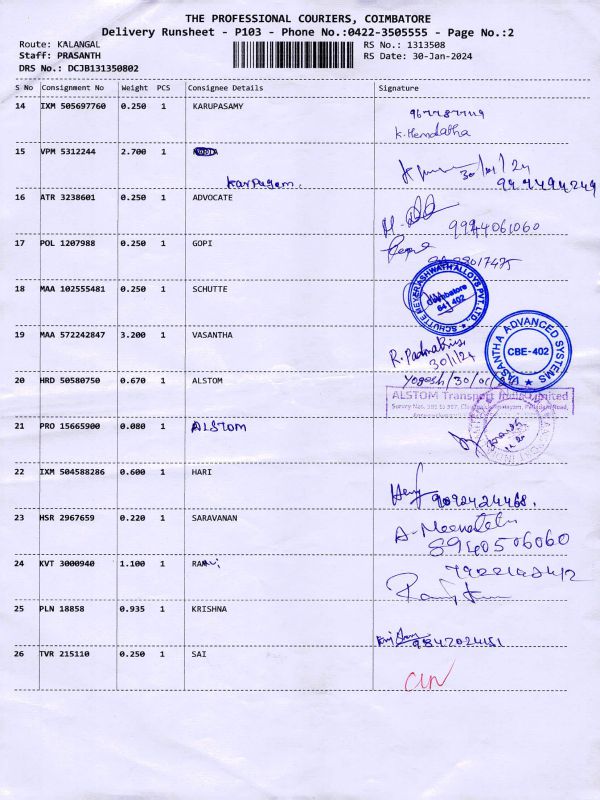 THE PROFESSIONAL COURIERS, COIMBATORE
Delivery Runsheet - P103 - Phone No.:0422-3505555 - Page No.:2
Route: KALANGAL
RS No.: 1313508
Staff: PRASANTH
RS Date: 30-Jan-2024
DRS No.: DCJB131350802
S No Consignment No Weight PCS Consignee Details Signature
14 IXM 505697760 0.250 1 KARUPASAMY
K. Hemalatha
15 VPM 5312244 2.700 1
Karpagam. 30/01/24
16 ATR 3238601 0.250 1 ADVOCATE
9944061060
17 POL 1207988 0.250 1 GOPI
Gopi
18 MAA 102555481 0.250 1 SCHUTTE
SCHUTTE MEYER ASHWATH ALLOYS PVT. LTD.
Coimbatore
641 402
19 MAA 572242847 3.200 1 VASANTHA
R. Padmapriya
30/1/24
VASANTHA ADVANCED SYSTEMS
CBE-402
20 HRD 50580750 0.670 1 ALSTOM
Yogesh/30/01/24
ALSTOM Transport India Limited
21 PRO 15665900 0.080 1 ALSTOM
22 IXM 504588286 0.600 1 HARI
Hari 9092424468.
23 HSR 2967659 0.220 1 SARAVANAN
A. Meenatchi
8940506060
24 KVT 3000940 1.100 1
25 PLN 18858 0.935 1 KRISHNA
9842024151
26 TVR 215110 0.250 1 SAI